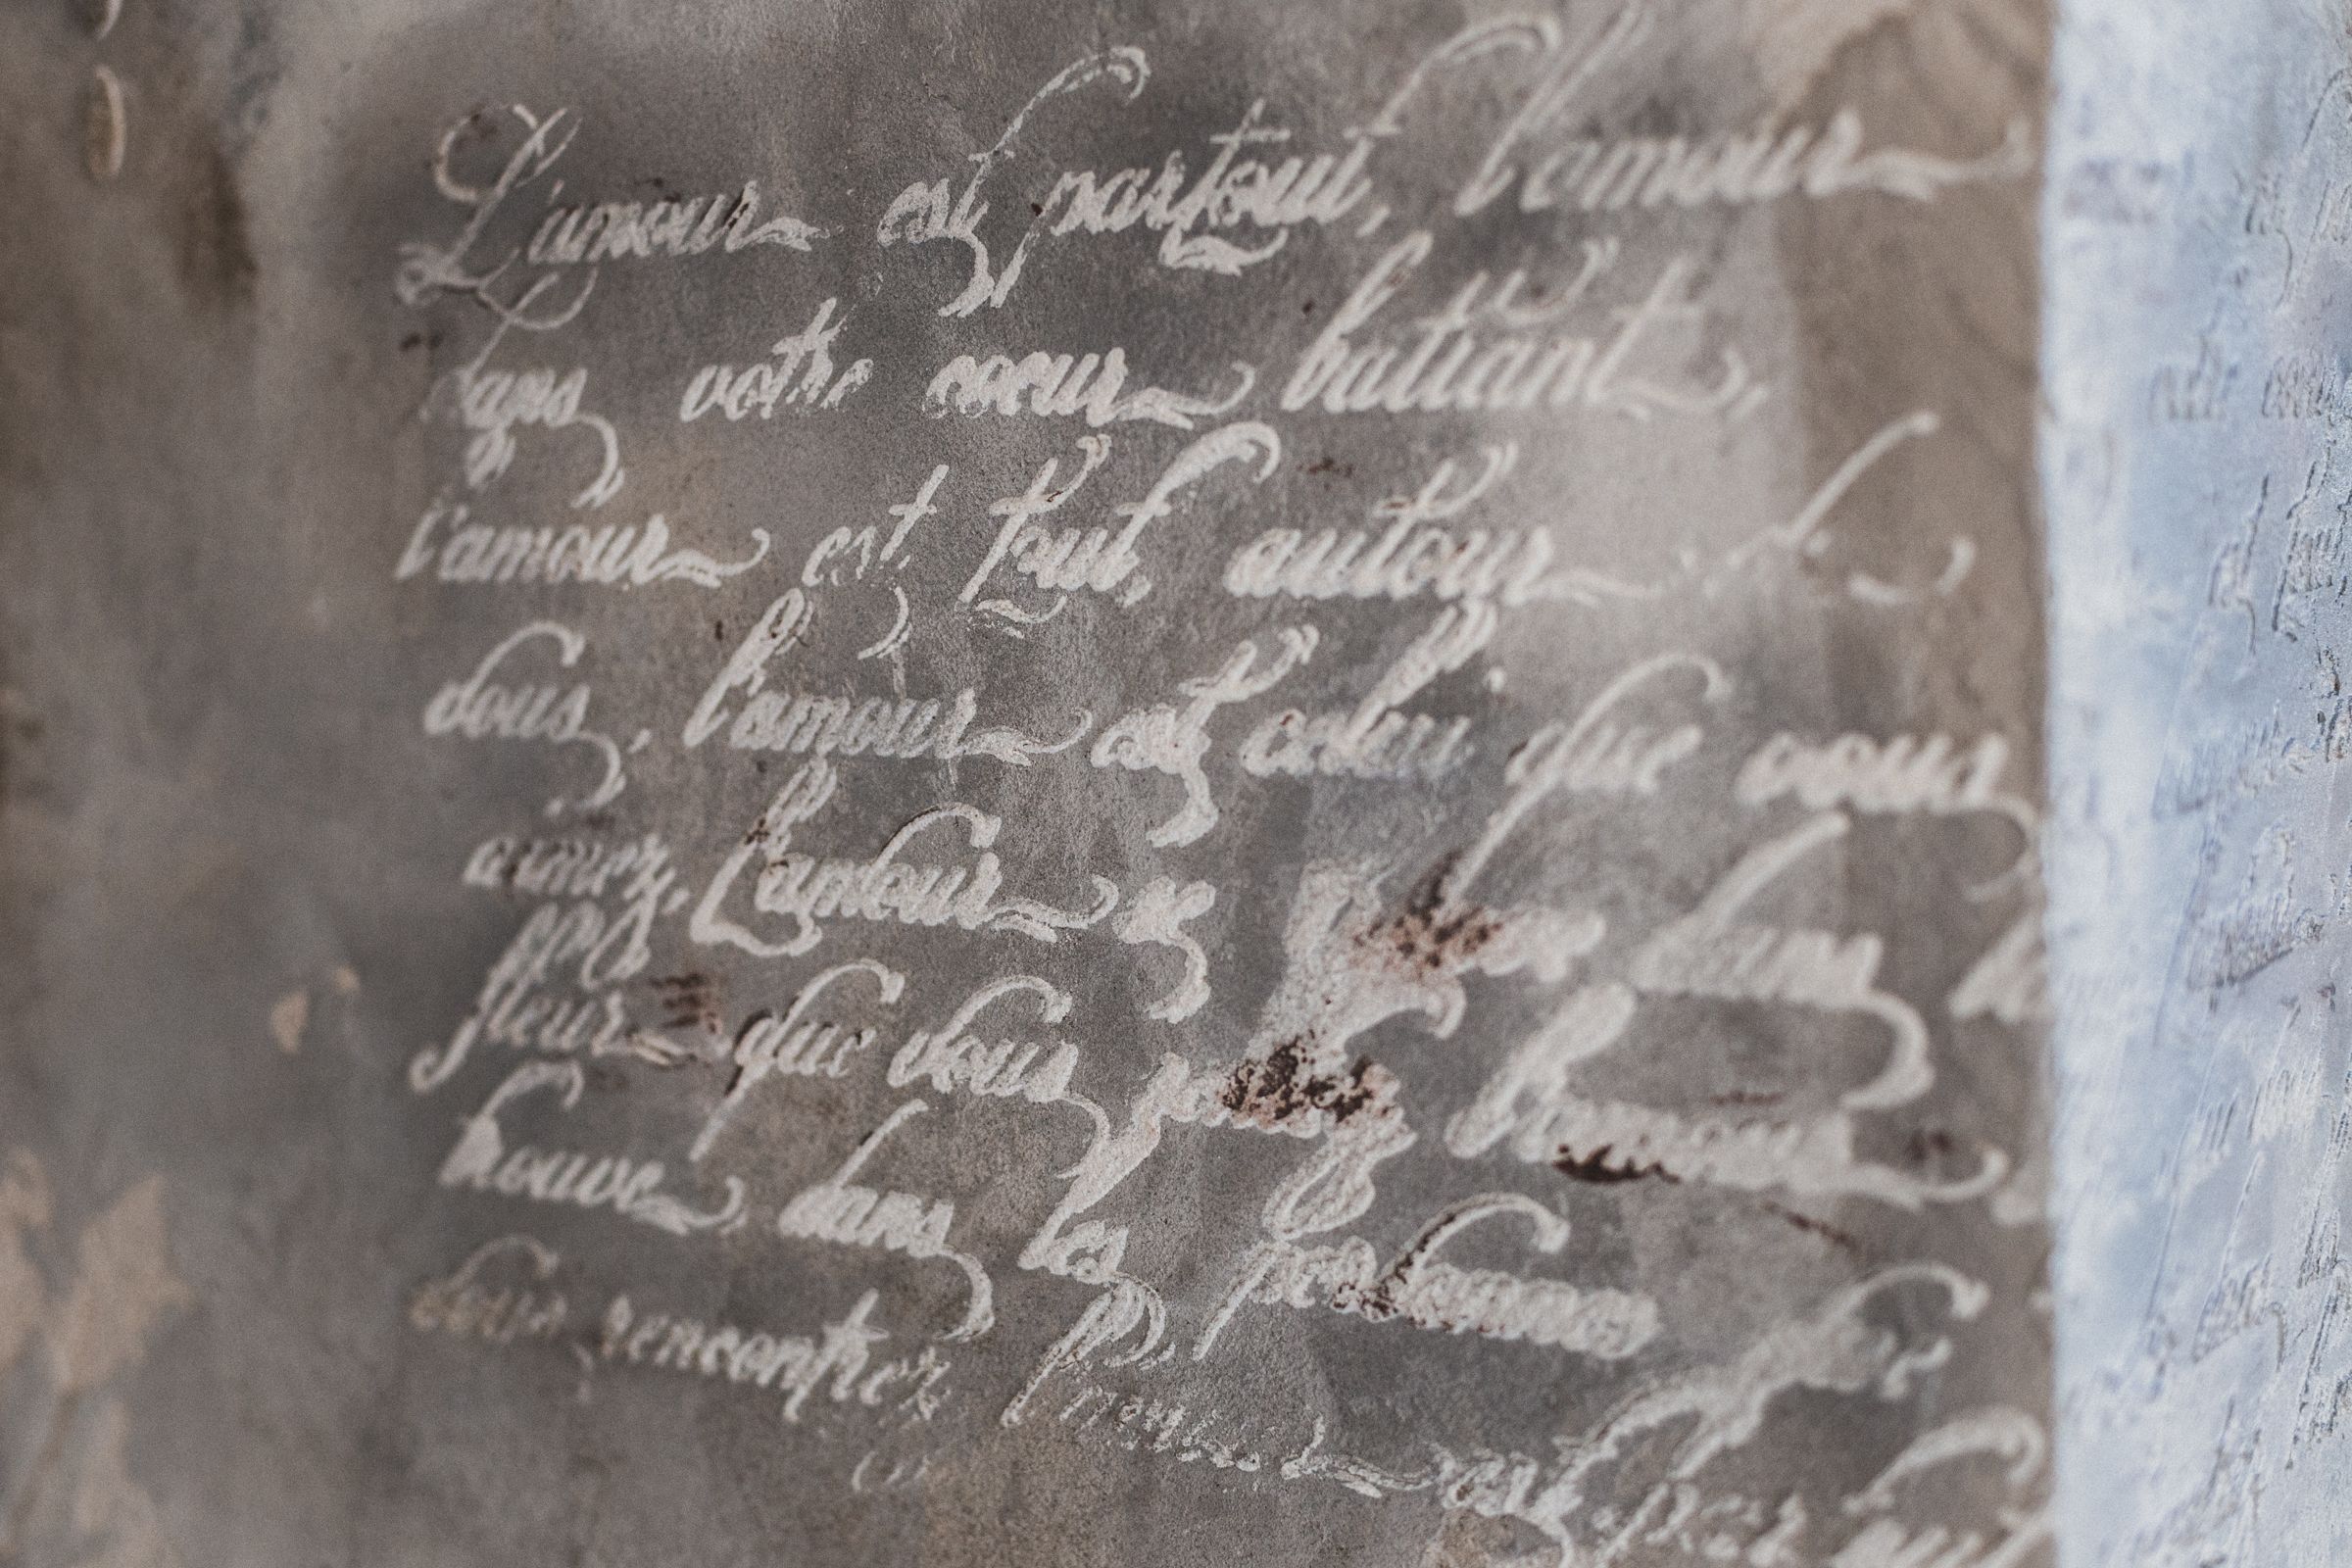 L'amour est partout, l'amour
dans votre coeur battant,
l'amour est tout autour de
vous, l'amour est celui que vous
aimez, l'amour est dans la
fleur que vous
trouve dans les personnes
vous rencontrez l'amour est partout